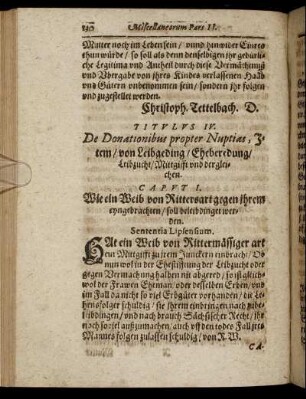 Miscellaneorum Pars II.
Mutter noch im Leben sein / vnnd hinwider
thun würde / so soll als denn denselbigen ihr gebürli-
che Legitima vnd Antheil durch diese Vermächtnuß
vnd Vbergabe von ihres Kindes verlassenen Haab
vnd Gütern vnbenommen sein / sondern ihr folgen
vnd zugestellet werden.
Christoph. Tettelbach. D.
TITVLVS IV.
De Donationibus propter Nuptias, J-
tem / von Leibgeding / Eheberedung /
Leibzucht / Mittgifft vnd derglei-
chen.
CAPVT I.
Wie ein Weib von Rittersart gegen ihrem
eyngebrachten / soll beleibdinget wer-
den.
Sententia Lipsensium.
HAt ein Weib von Rittermässiger art
ein Mittgifft zu irem Junckern einbracht / Ob
nun wol in der Ehestifftung der Leibzucht oder
gegen Vermachung halben nit abgered / so ist gleich-
wol der Frawen Eheman oder desselben Erben / vnd
im Fall da nicht so viel Erbgüter vorhanden / die Le-
hensfolger schuldig / sie ihrem einbringen nach
libdingen / vnd nach brauch Sächsischer Recht / ihr
nach so viel außzumachen, auch vff den todes Fall jres
Mannes folgen zulassen schuldig / von R. W.
CA-